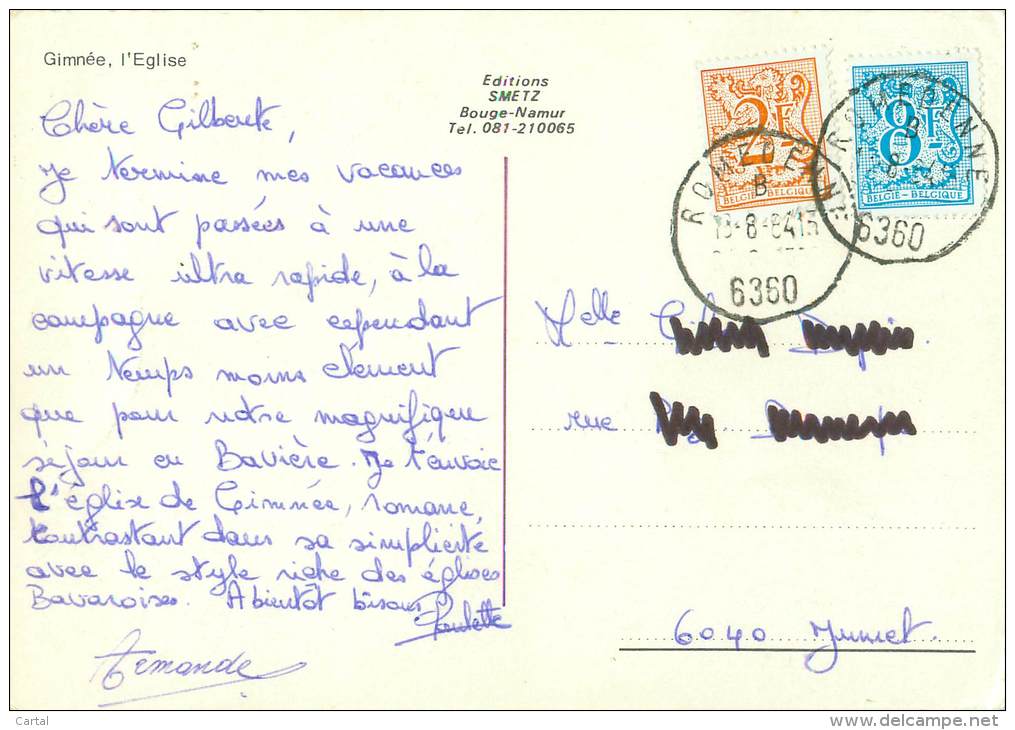 Gimnée, l'Eglise
Editions
SMETZ
Bouge-Namur
Tel. 081-210065
Chère Gilberte,
Je termine mes vacances
qui sont passées à une
vitesse ultra rapide, à la
campagne avec cependant
un temps moins clément
que pour notre magnifique
séjour en Bavière. Je t'envoie
l'église de Gimnée, romane,
contrastant dans sa simplicité
avec le style riche des églises
Bavaroises. A bientôt bisous
Paulette
Armande
2F
BELGIE-BELGIQUE
8F
BELGIE-BELGIQUE
ROMEDENNE
B
13-8-84 15
6360
ROMEDENNE
B
6360
Melle
rue
6040 Jumet.
Cartal
www.delcampe.net